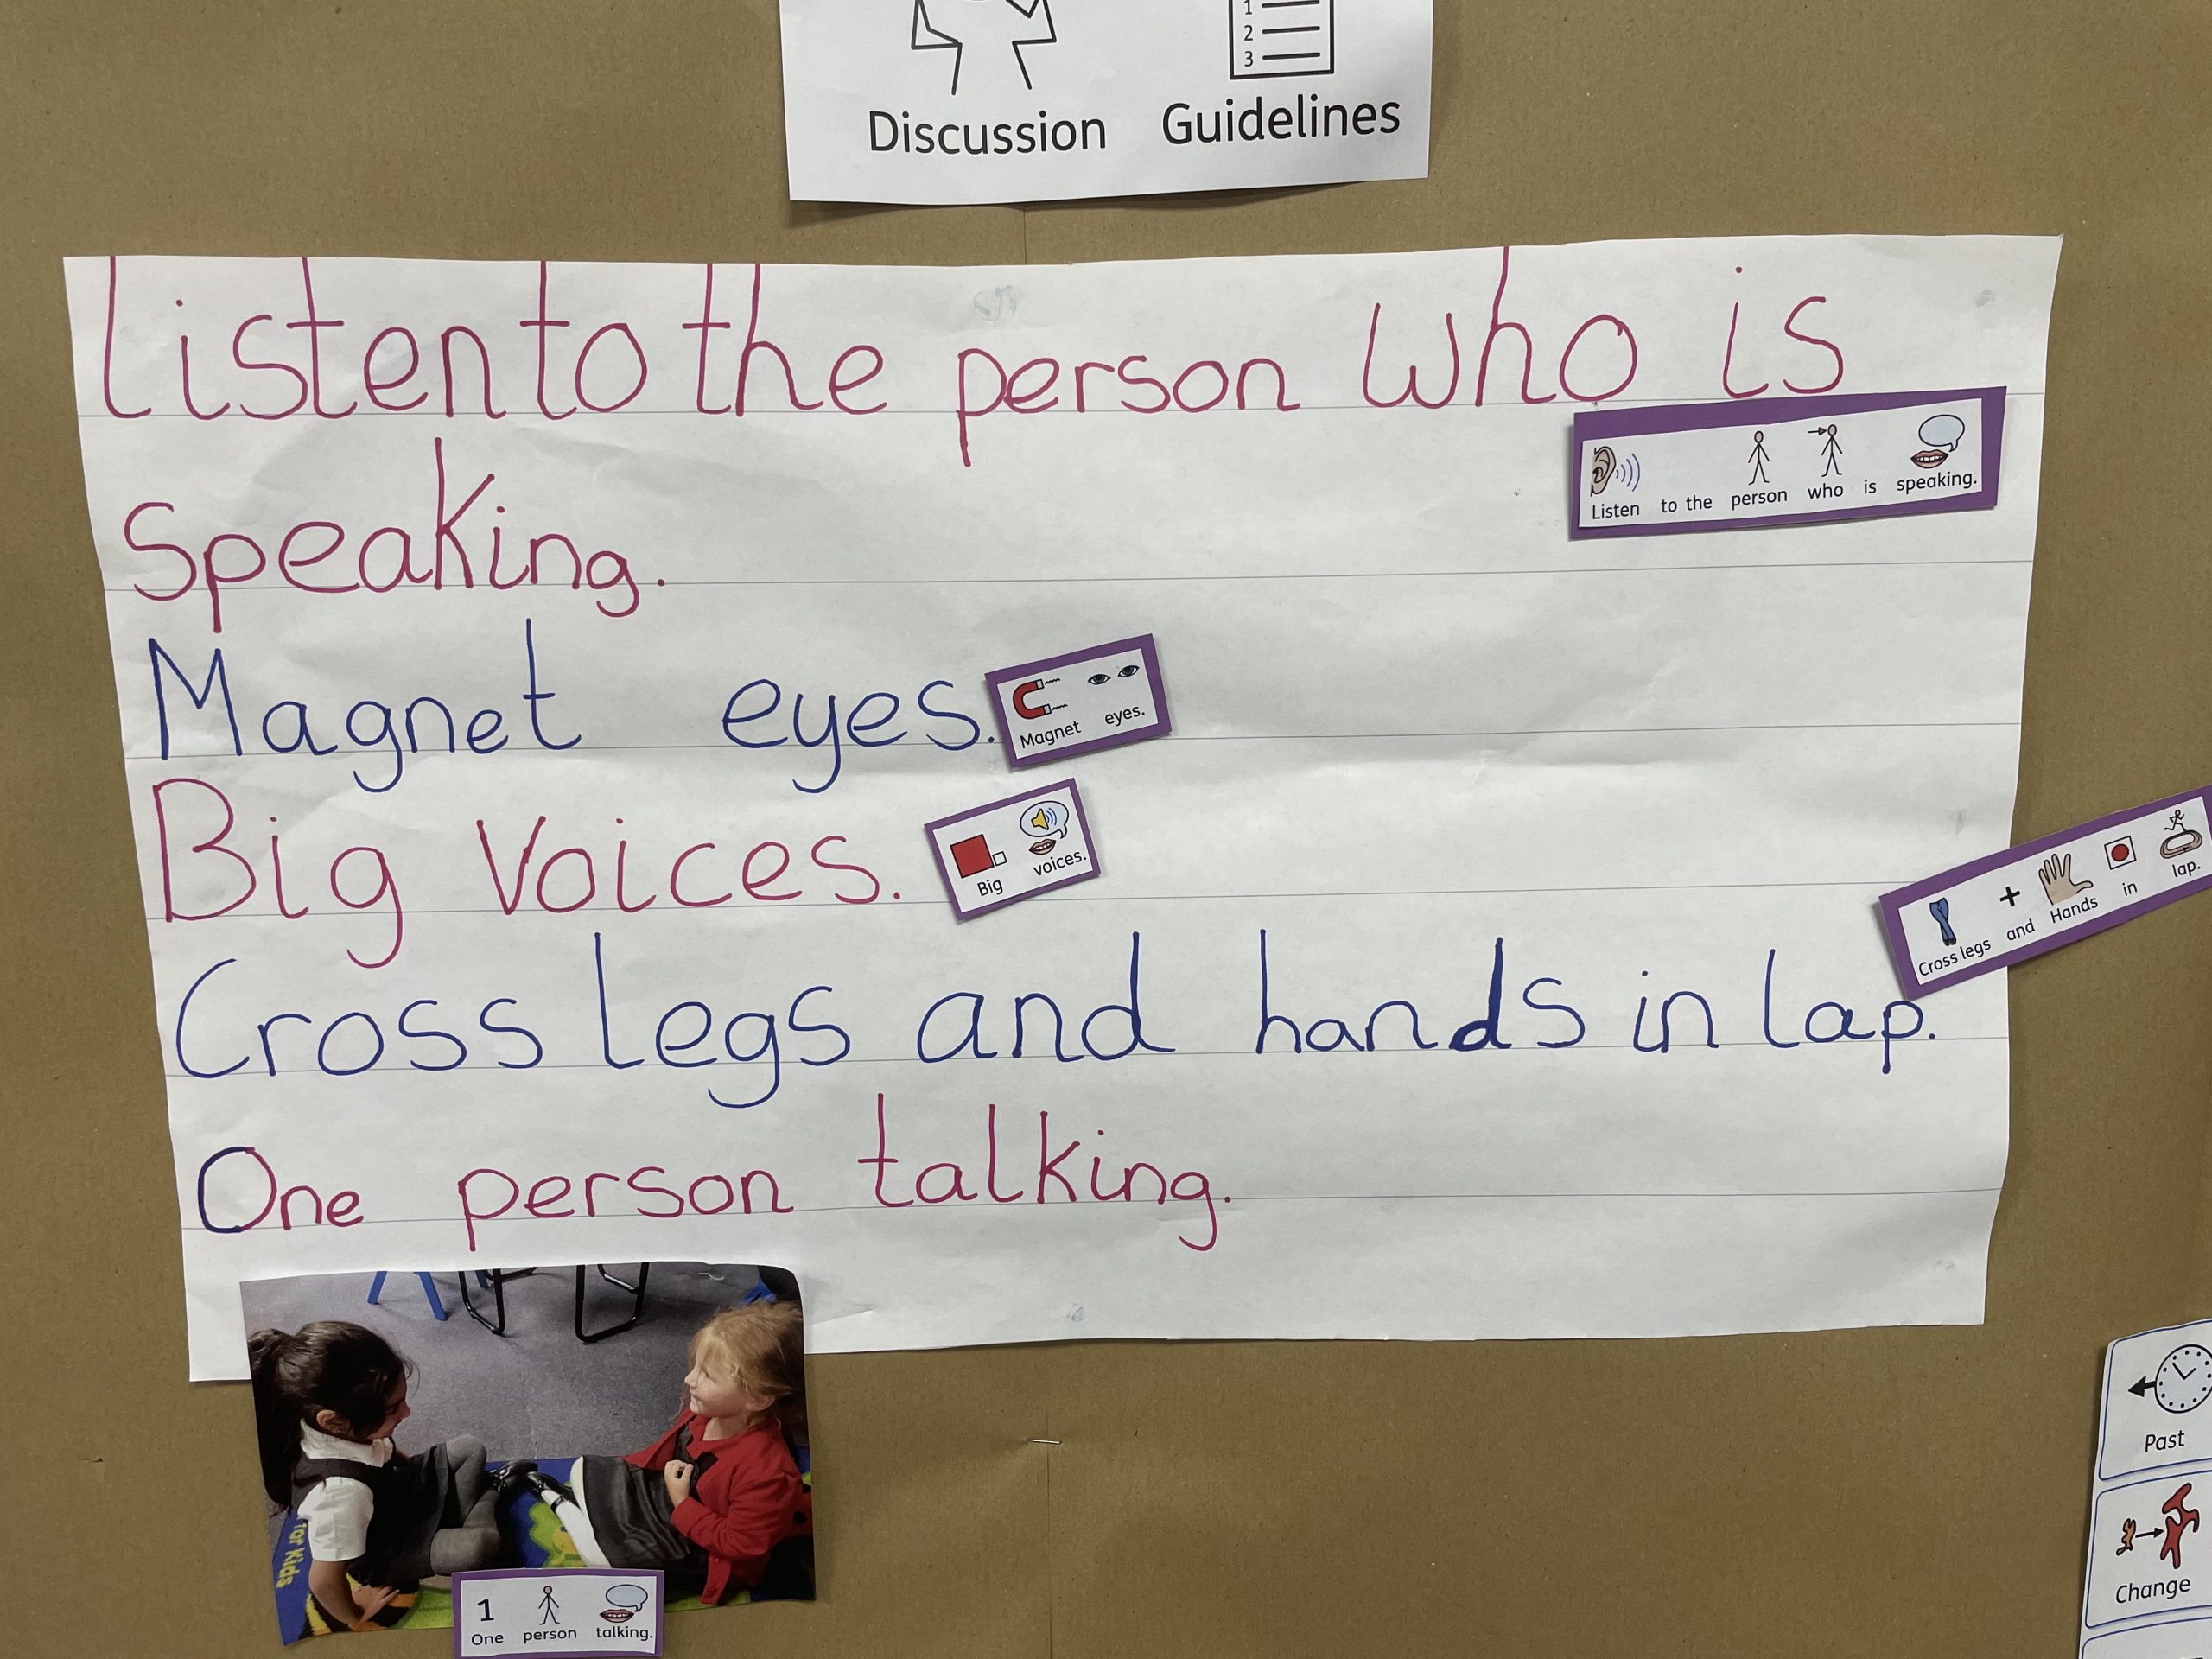 1
2
3
Discussion Guidelines
Listen to the person who is
speaking.
Listen to the person who is speaking.
Magnet eyes.
Magnet eyes.
Big voices.
Big voices.
Cross legs and Hands in lap.
Cross legs and hands in lap.
One person talking.
for kids
1
One person talking.
Past
Change